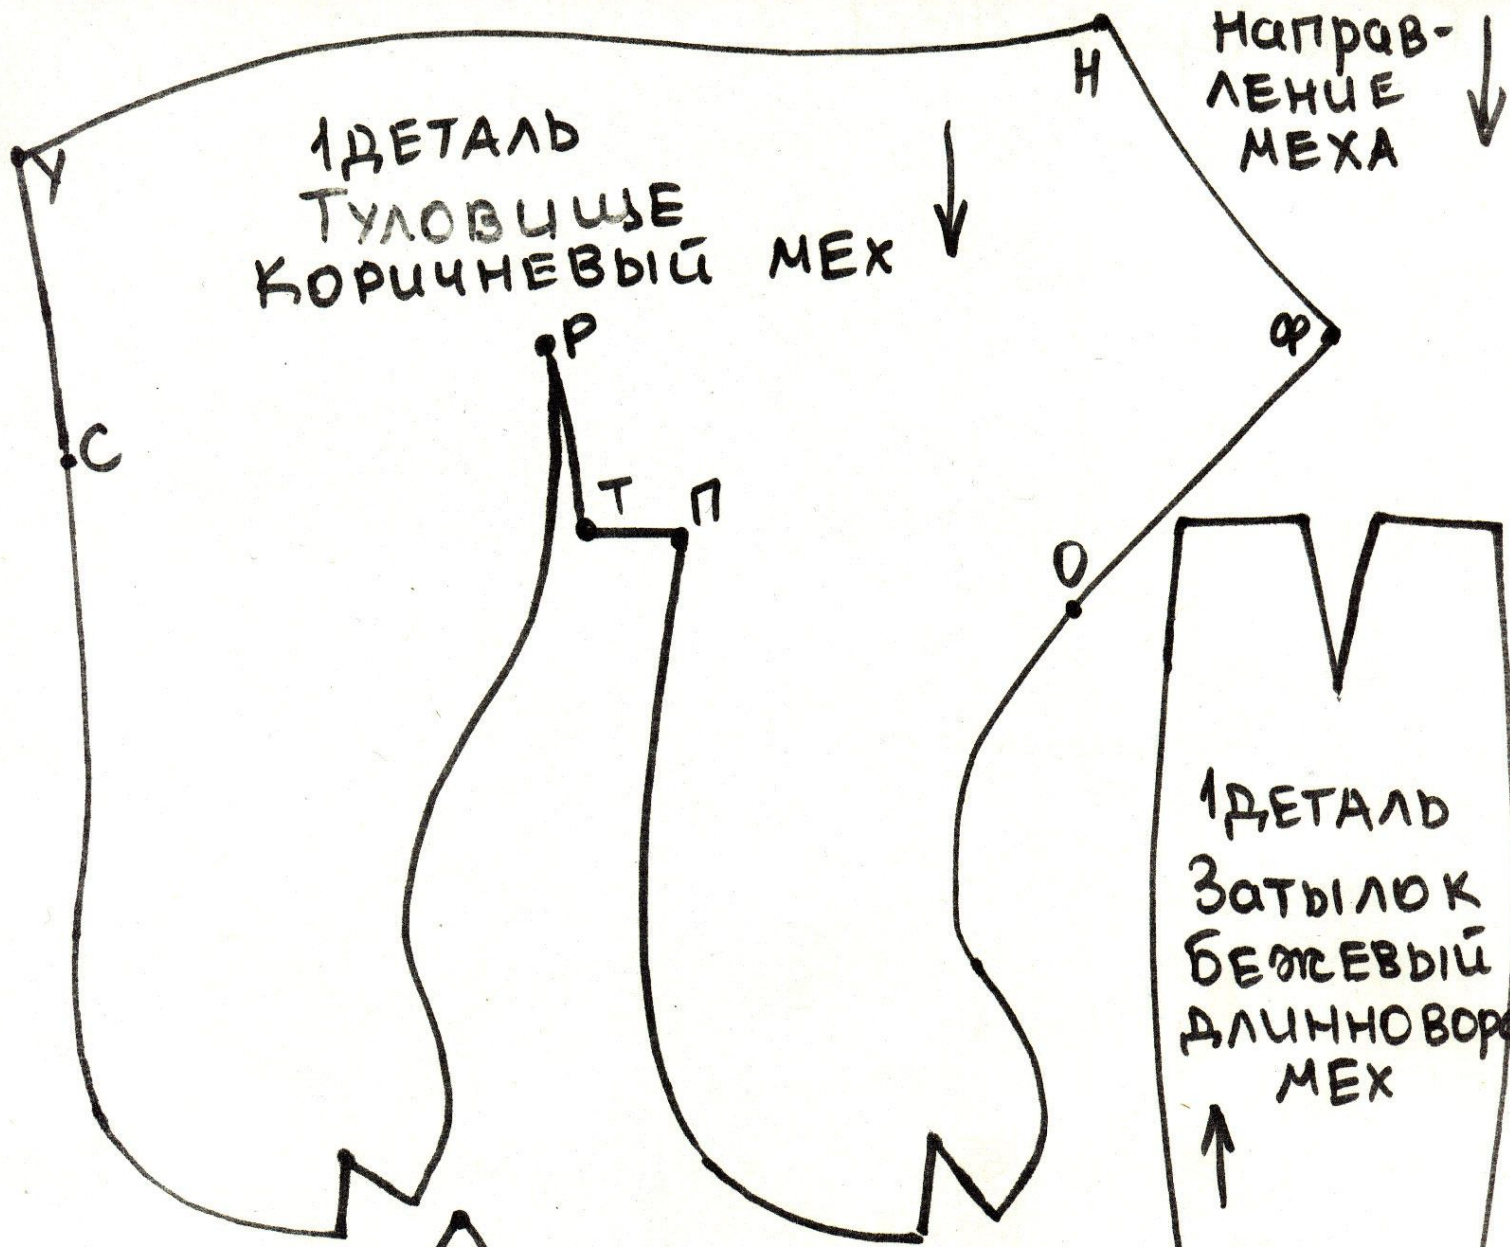 Направ-
ЛЕНИЕ
МЕХА
Н
У
1 ДЕТАЛЬ
ТУЛОВИЩЕ
КОРИЧНЕВЫЙ МЕХ
Р
Ф
С
Т П
О
1 ДЕТАЛЬ
Затылок
БЕЖЕВЫЙ
ДЛИННОВОР
МЕХ